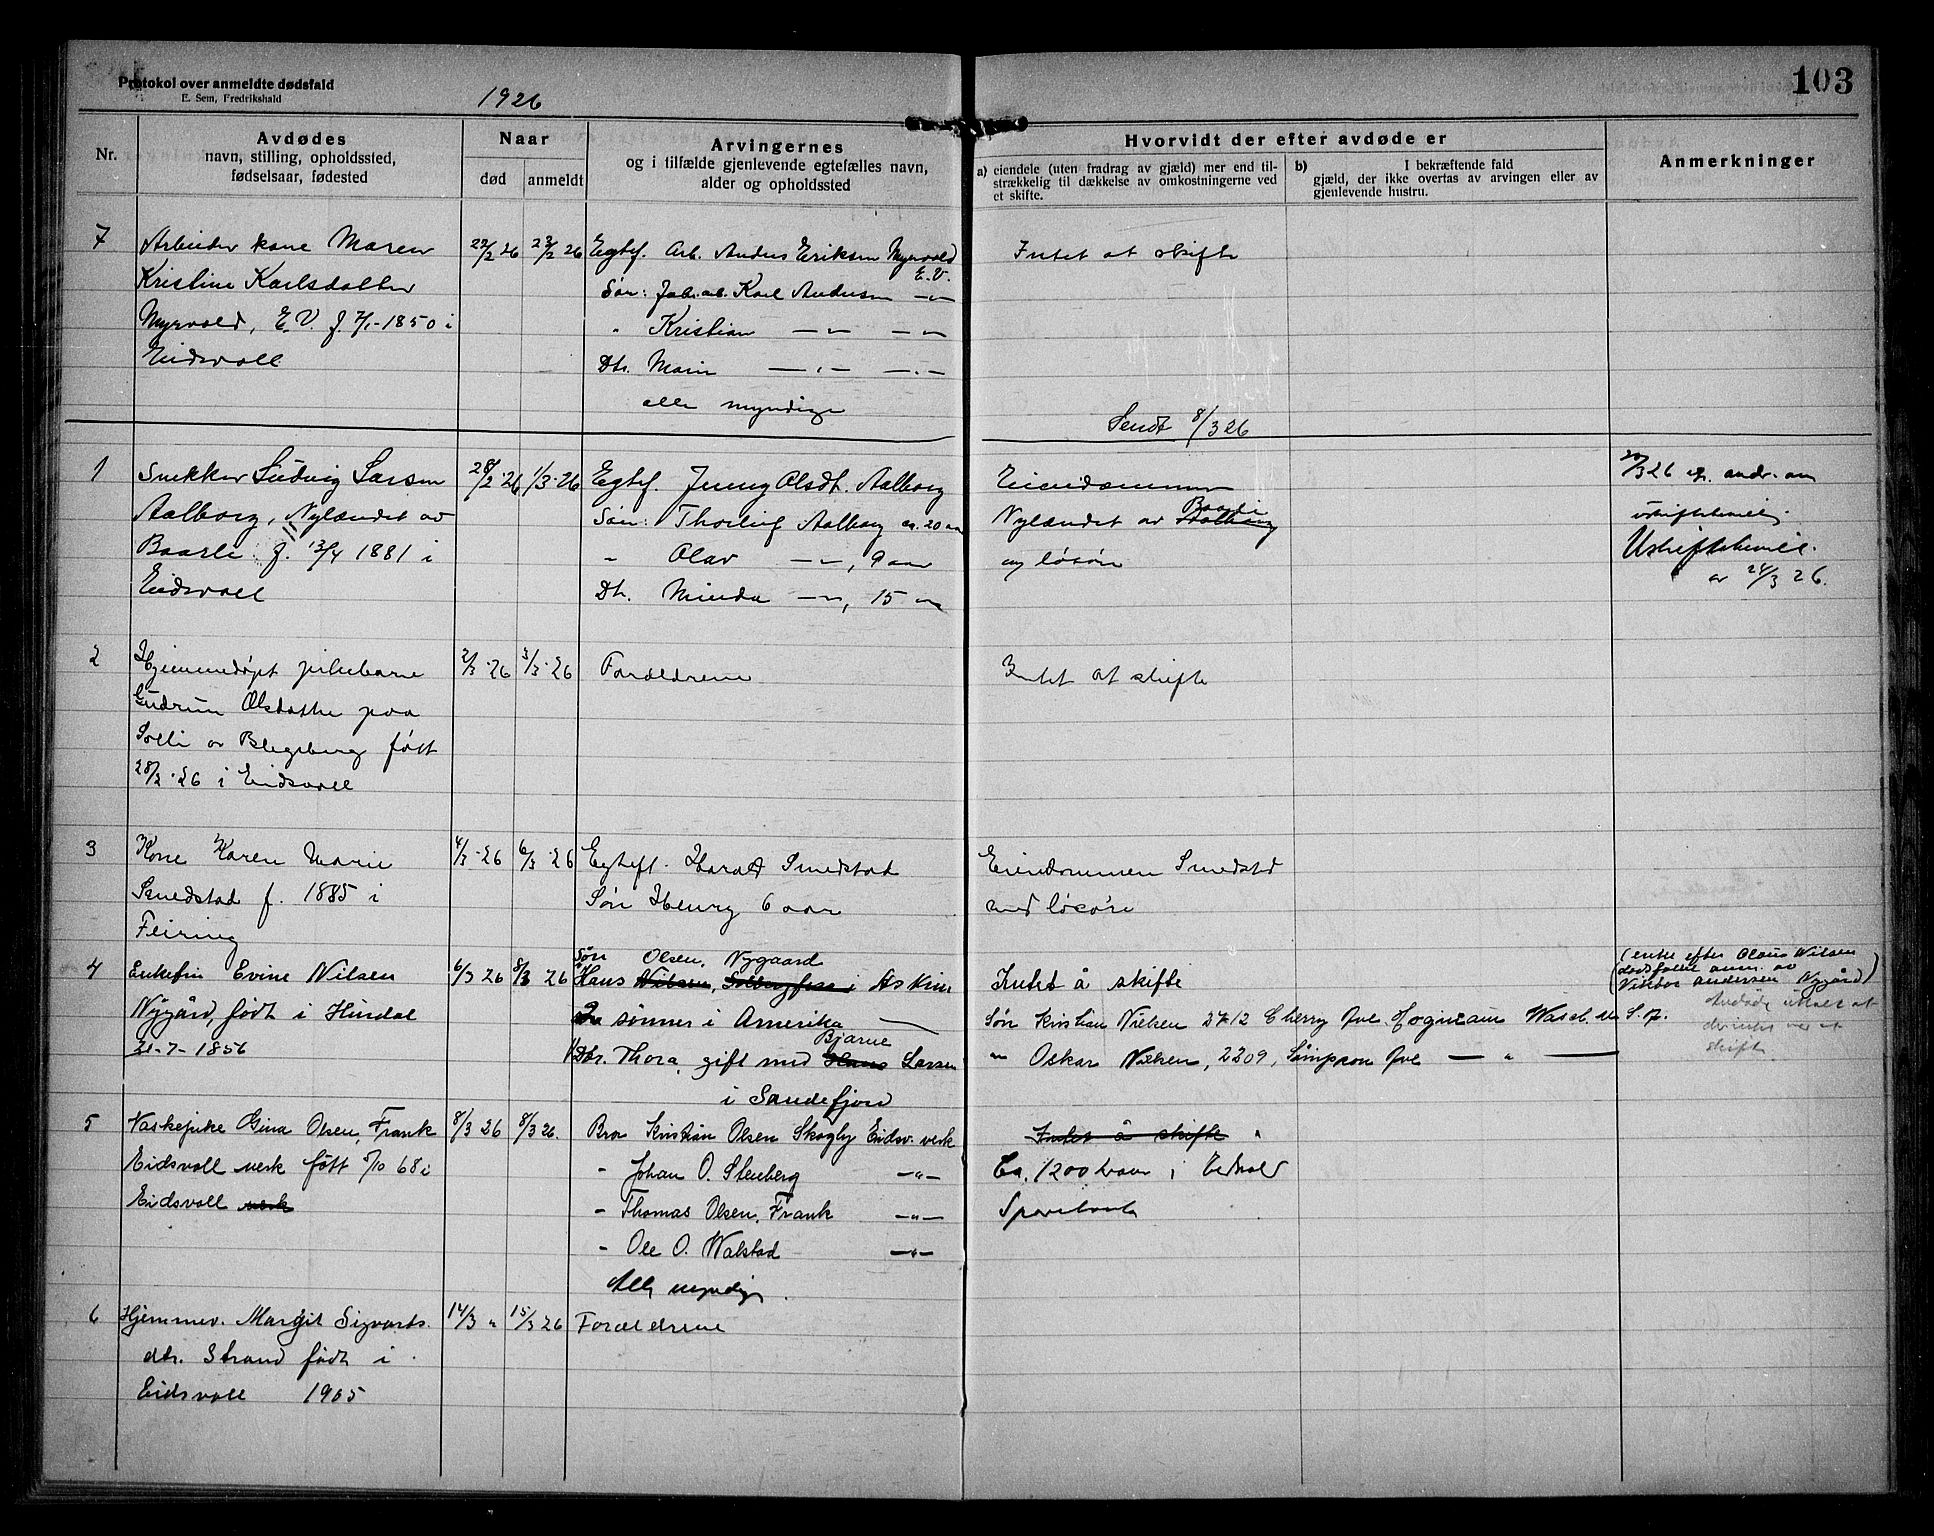 Protokol over anmeldte dødsfald
E. Sem, Fredrikshald
1926
103
Nr.
Avdødes
navn, stilling, opholdssted,
fødselsaar, fødested
Naar
død
anmeldt
Arvingernes
og i tilfælde gjenlevende egtefælles navn,
alder og opholdssted
Hvorvidt der efter avdøde er
a) eiendele (uten fradrag av gjæld) mer end til-
strækkelig til dækkelse av omkostningerne ved
et skifte.
b) I bekræftende fald
gjæld, der ikke overtas av arvingen eller av
gjenlevende hustru.
Anmerkninger
7 Arbeider kone Maren
Kristine Karlsdatter
Myrvold, E.V. f. 7/1-1850 i
Eidsvoll
22/2 26 23/2 26
Egtef. Arb. Anders Eriksen Myrvold
E.V.
Søn: Karl Andersen —"—
" Kristian —"— —"—
Dtr. Marie —"— —"—
alle myndige
Intet at skifte
Sendt 8/3 26
1 Snekker Ludvig Larsen
Aalborg, Nylændet av
Baarli f. 13/4 1881 i
Eidsvoll
28/2-26 1/3-26
Egtef. Jenny Olsdt. Aalborg
Søn: Thorleif Aalborg ca. 20 aar
" Olav —"—, 9 aar
Dt. Minda —"—, 15 aar
Eiendommen
Baarli
Nylændet av Aalborg
og løsøre
20/3 26 andr. om
uskiftebevilg.
Uskiftebevil.
av 24/3 26.
2 Hjemmedøpt pikebarn
Gudrun Olsdatter paa
Solli av Blegsberg født
28/2-26 i Eidsvoll
2/3-26 3/3-26
Forældrene
Intet at skifte
3 Kone Karen Marie
Smedstad f. 1885 i
Feiring
4/3-26 6/3-26
Egtef. Harald Smedstad
Søn Henry 6 aar
Eiendommen Smedstad
med løsøre
4 Enkefru Evine Nilsen
Nygård, født i Hurdal
21-7-1856
6/3 26 8/3 26
Søn Olsen, Nygaard
Hans Nilsen, i Askim
2 sønner i Amerika
Bjarne
Dtr. Thora, gift med Hans Larsen
i Sandefjord
Intet å skifte
Søn Kristian Nielsen 2412 Cherry Ave. Hoquiam Wash. U.S.A.
" Oskar Nielsen, 2209, Simpson Ave —"—
(enke efter Olaus Nilsen
dødsfallet anm. av
Viktor Andersen Nygård)
skifte.
5 Vaskepike Gina Olsen, Frank
Eidsvoll verk født 5/10 68 i
Eidsvoll verk
8/3 26 8/3 26.
Bror Kristian Olsen Skogly Eidsv. verk
" Johan O. Stenberg —"—
" Thomas Olsen, Frank —"—
" Ole O. Walstad —"—
Alle myndige.
Intet å skifte
Ca. 1200 kroner i Eidsvold
Sparebank
6 Hjemmev. Margit Sigvarts.
dtr. Strand født i
Eidsvoll 1905
14/3 " 15/3 26
Forældrene